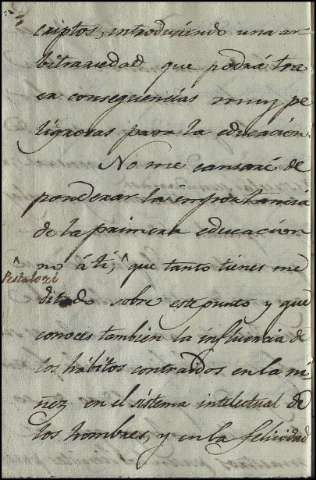 criptos, introduciendo una ar
bitrariedad que podrá tra
er consequencias muy pe
ligrosas para la educación.
No me cansaré de
ponderar la importancia
de la primera educacion
no á ti ^ que tanto tienes me
^ Pestalozi
ditado sobre este punto y que
conoces tambien la influencia de
los hábitos contraidos en la ni
ñez en el sistema intelectual de
los hombres, y en la felicidad